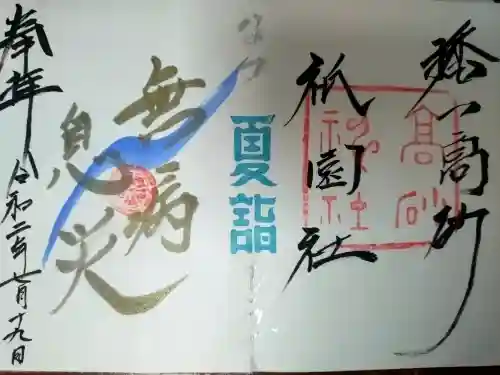 播州高砂
祇園社
高砂
神社
夏詣
無病
息災
奉拝 令和二年七月十九日